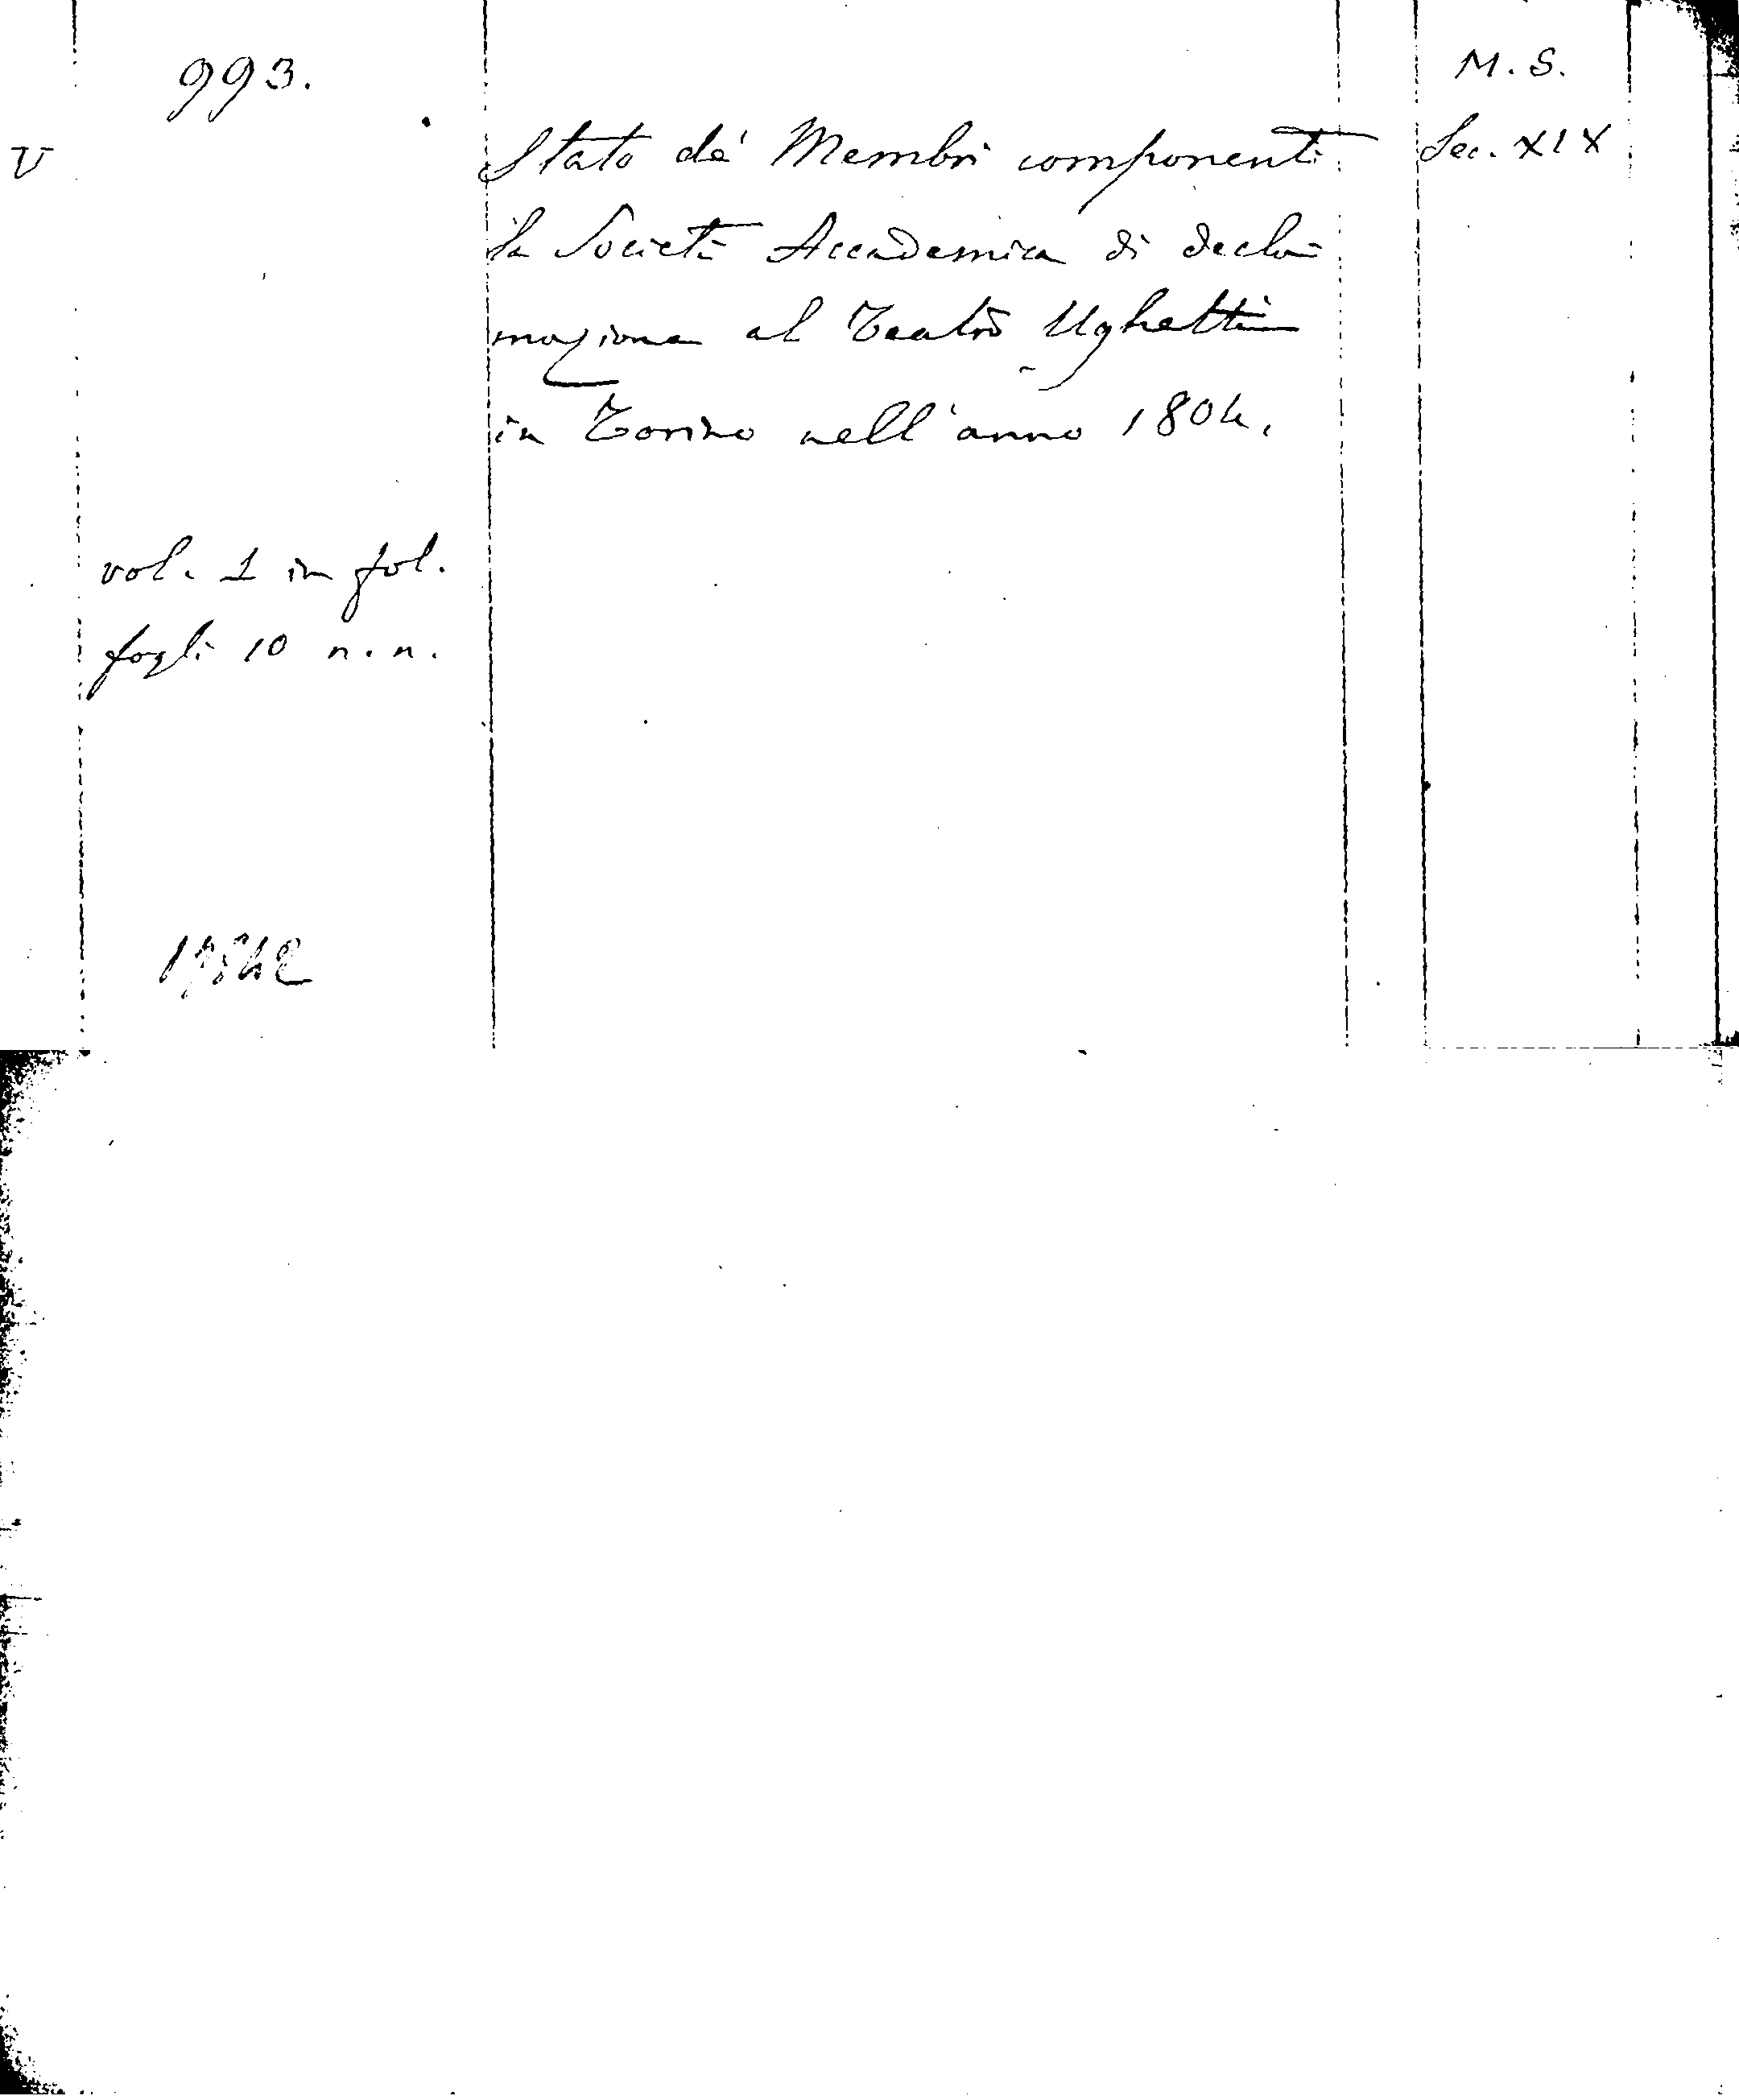 993.
M. S.
V
Stato de' Membri componenti
Sec. XIX
la Società Accademica di decla-
mazione al Teatro Ughetti
in Torino nell'anno 1804.
vol. 1 in fol.
fogli 10 n. n.